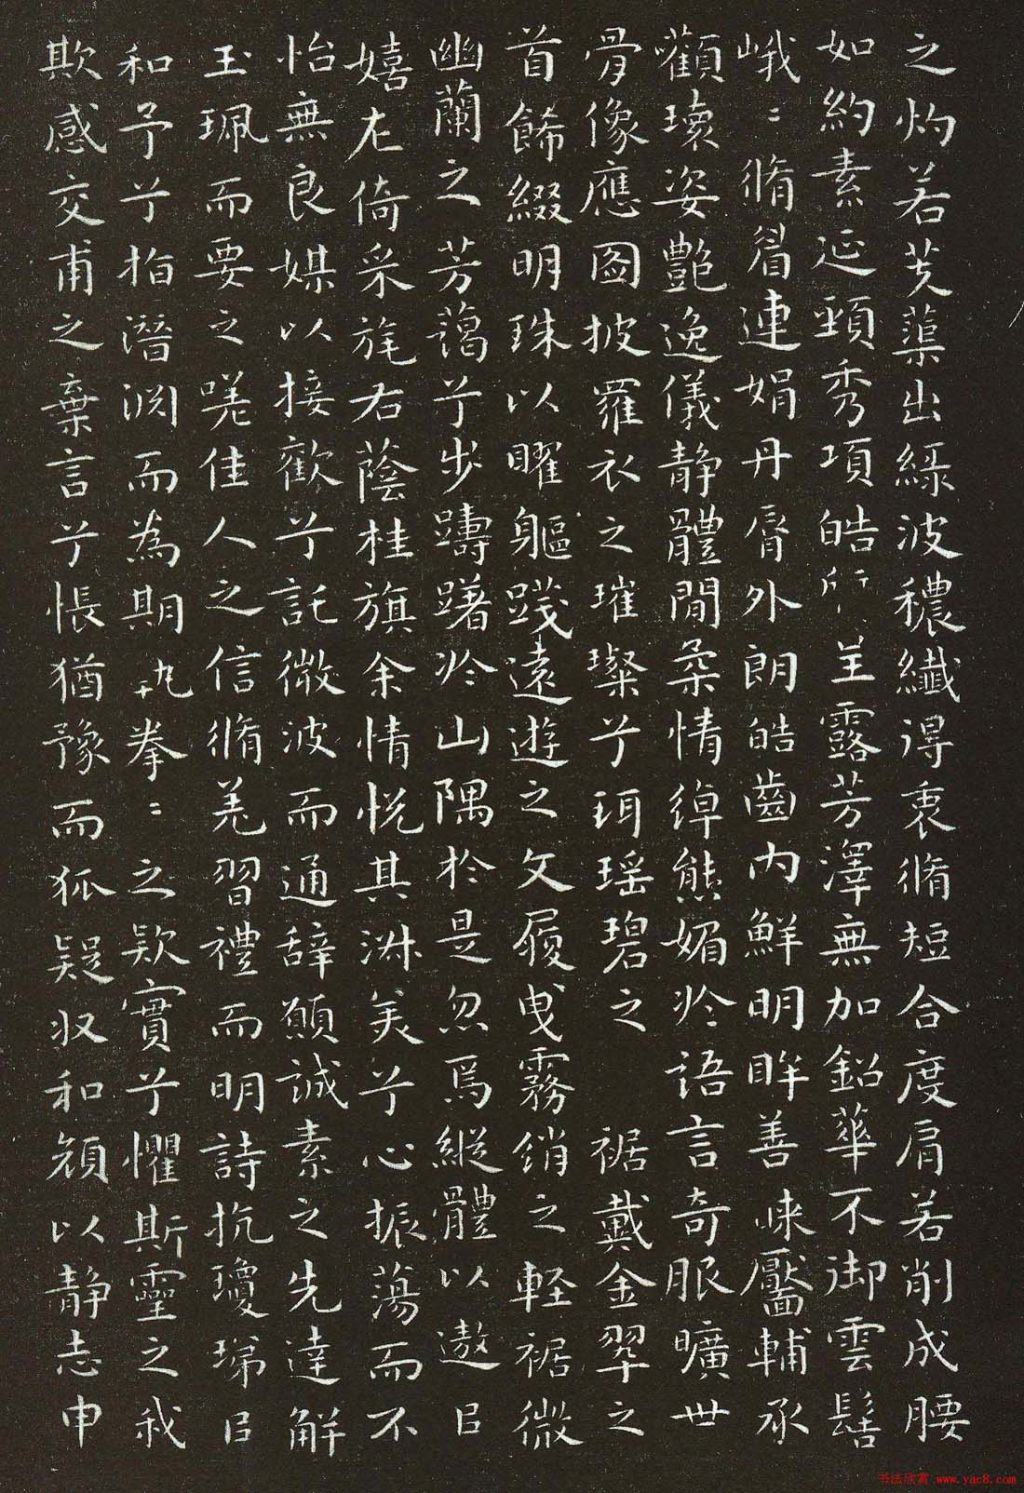 之灼若芙蕖出緑波穠纖得衷脩短合度肩若削成腰
如約素延頸秀項皓呈露芳澤無加鉛華不御雲髻
峨〻脩眉連娟丹脣外朗皓齒內鮮明眸善睞靨輔承
顴瓌姿艷逸儀静體閒柔情綽態媚於語言奇服曠世
骨像應圖披羅衣之璀璨兮珥瑶碧之裾戴金翠之
首飾綴明珠以曜軀踐遠遊之文履曳霧綃之軽裾微
幽蘭之芳藹兮步躊躇於山隅於是忽焉縱體以遨㠯
嬉左倚采旄右蔭桂旗余情悦其淑美兮心振蕩而不
怡無良媒以接歡兮託微波而通辞願誠素之先達解
玉珮而要之嗟佳人之信脩羌習禮而明詩抗瓊珶㠯
和予兮指潛渕而為期執拳〻之欵實兮懼斯靈之我
欺感交甫之棄言兮悵猶豫而狐疑収和顔以静志申
书法欣赏.www.yac8.com